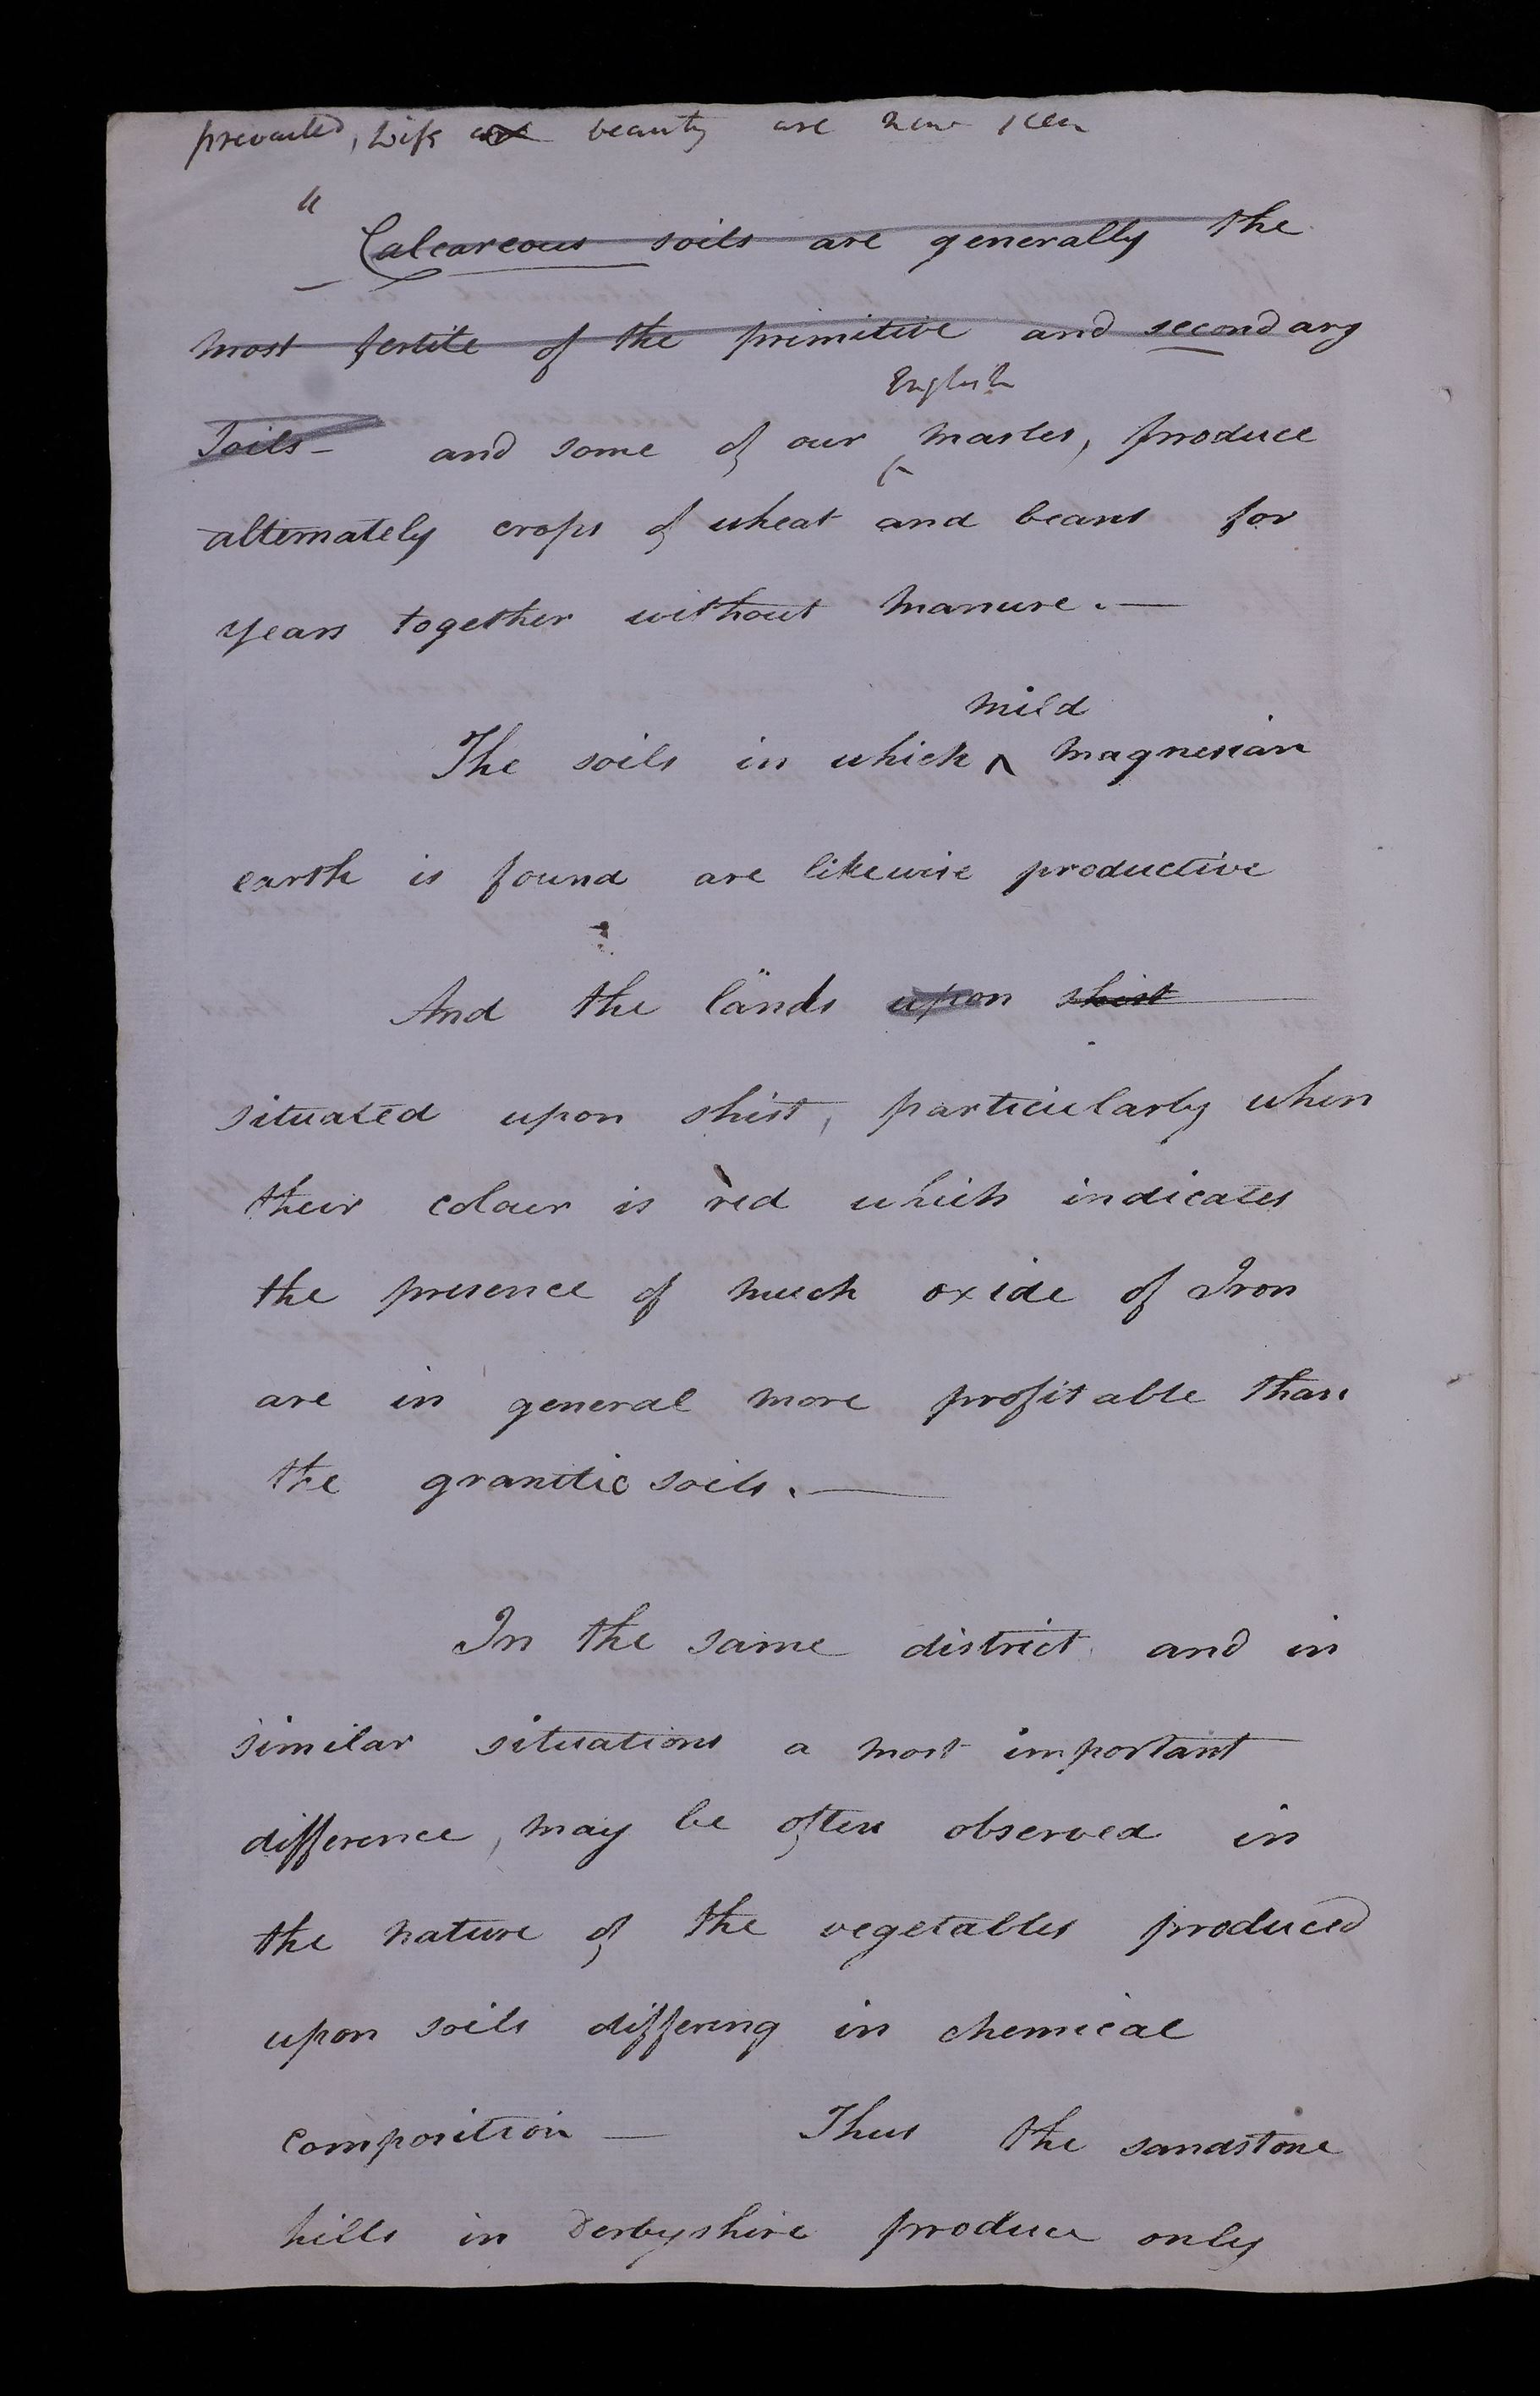 prevailed, Life and beauty are now seen
"
Calcareous soils are generally the
most fertile of the primitive and secondary
English
Soils - and some of our ^ marles, produce
alternately crops of wheat and beans for
years together without manure. —
mild
The soils in which ^ magnesian
earth is found are likewise productive
And the lands upon shist
situated upon shist, particularly when
their colour is red which indicates
the presence of much oxide of Iron
are in general more profitable than
the granitic soils. —
In the same district and in
similar situations a most important
difference, may be often observed in
the nature of the vegetables produced
upon soils differing in chemical
composition — Thus the sandstone
hills in Derbyshire produce only